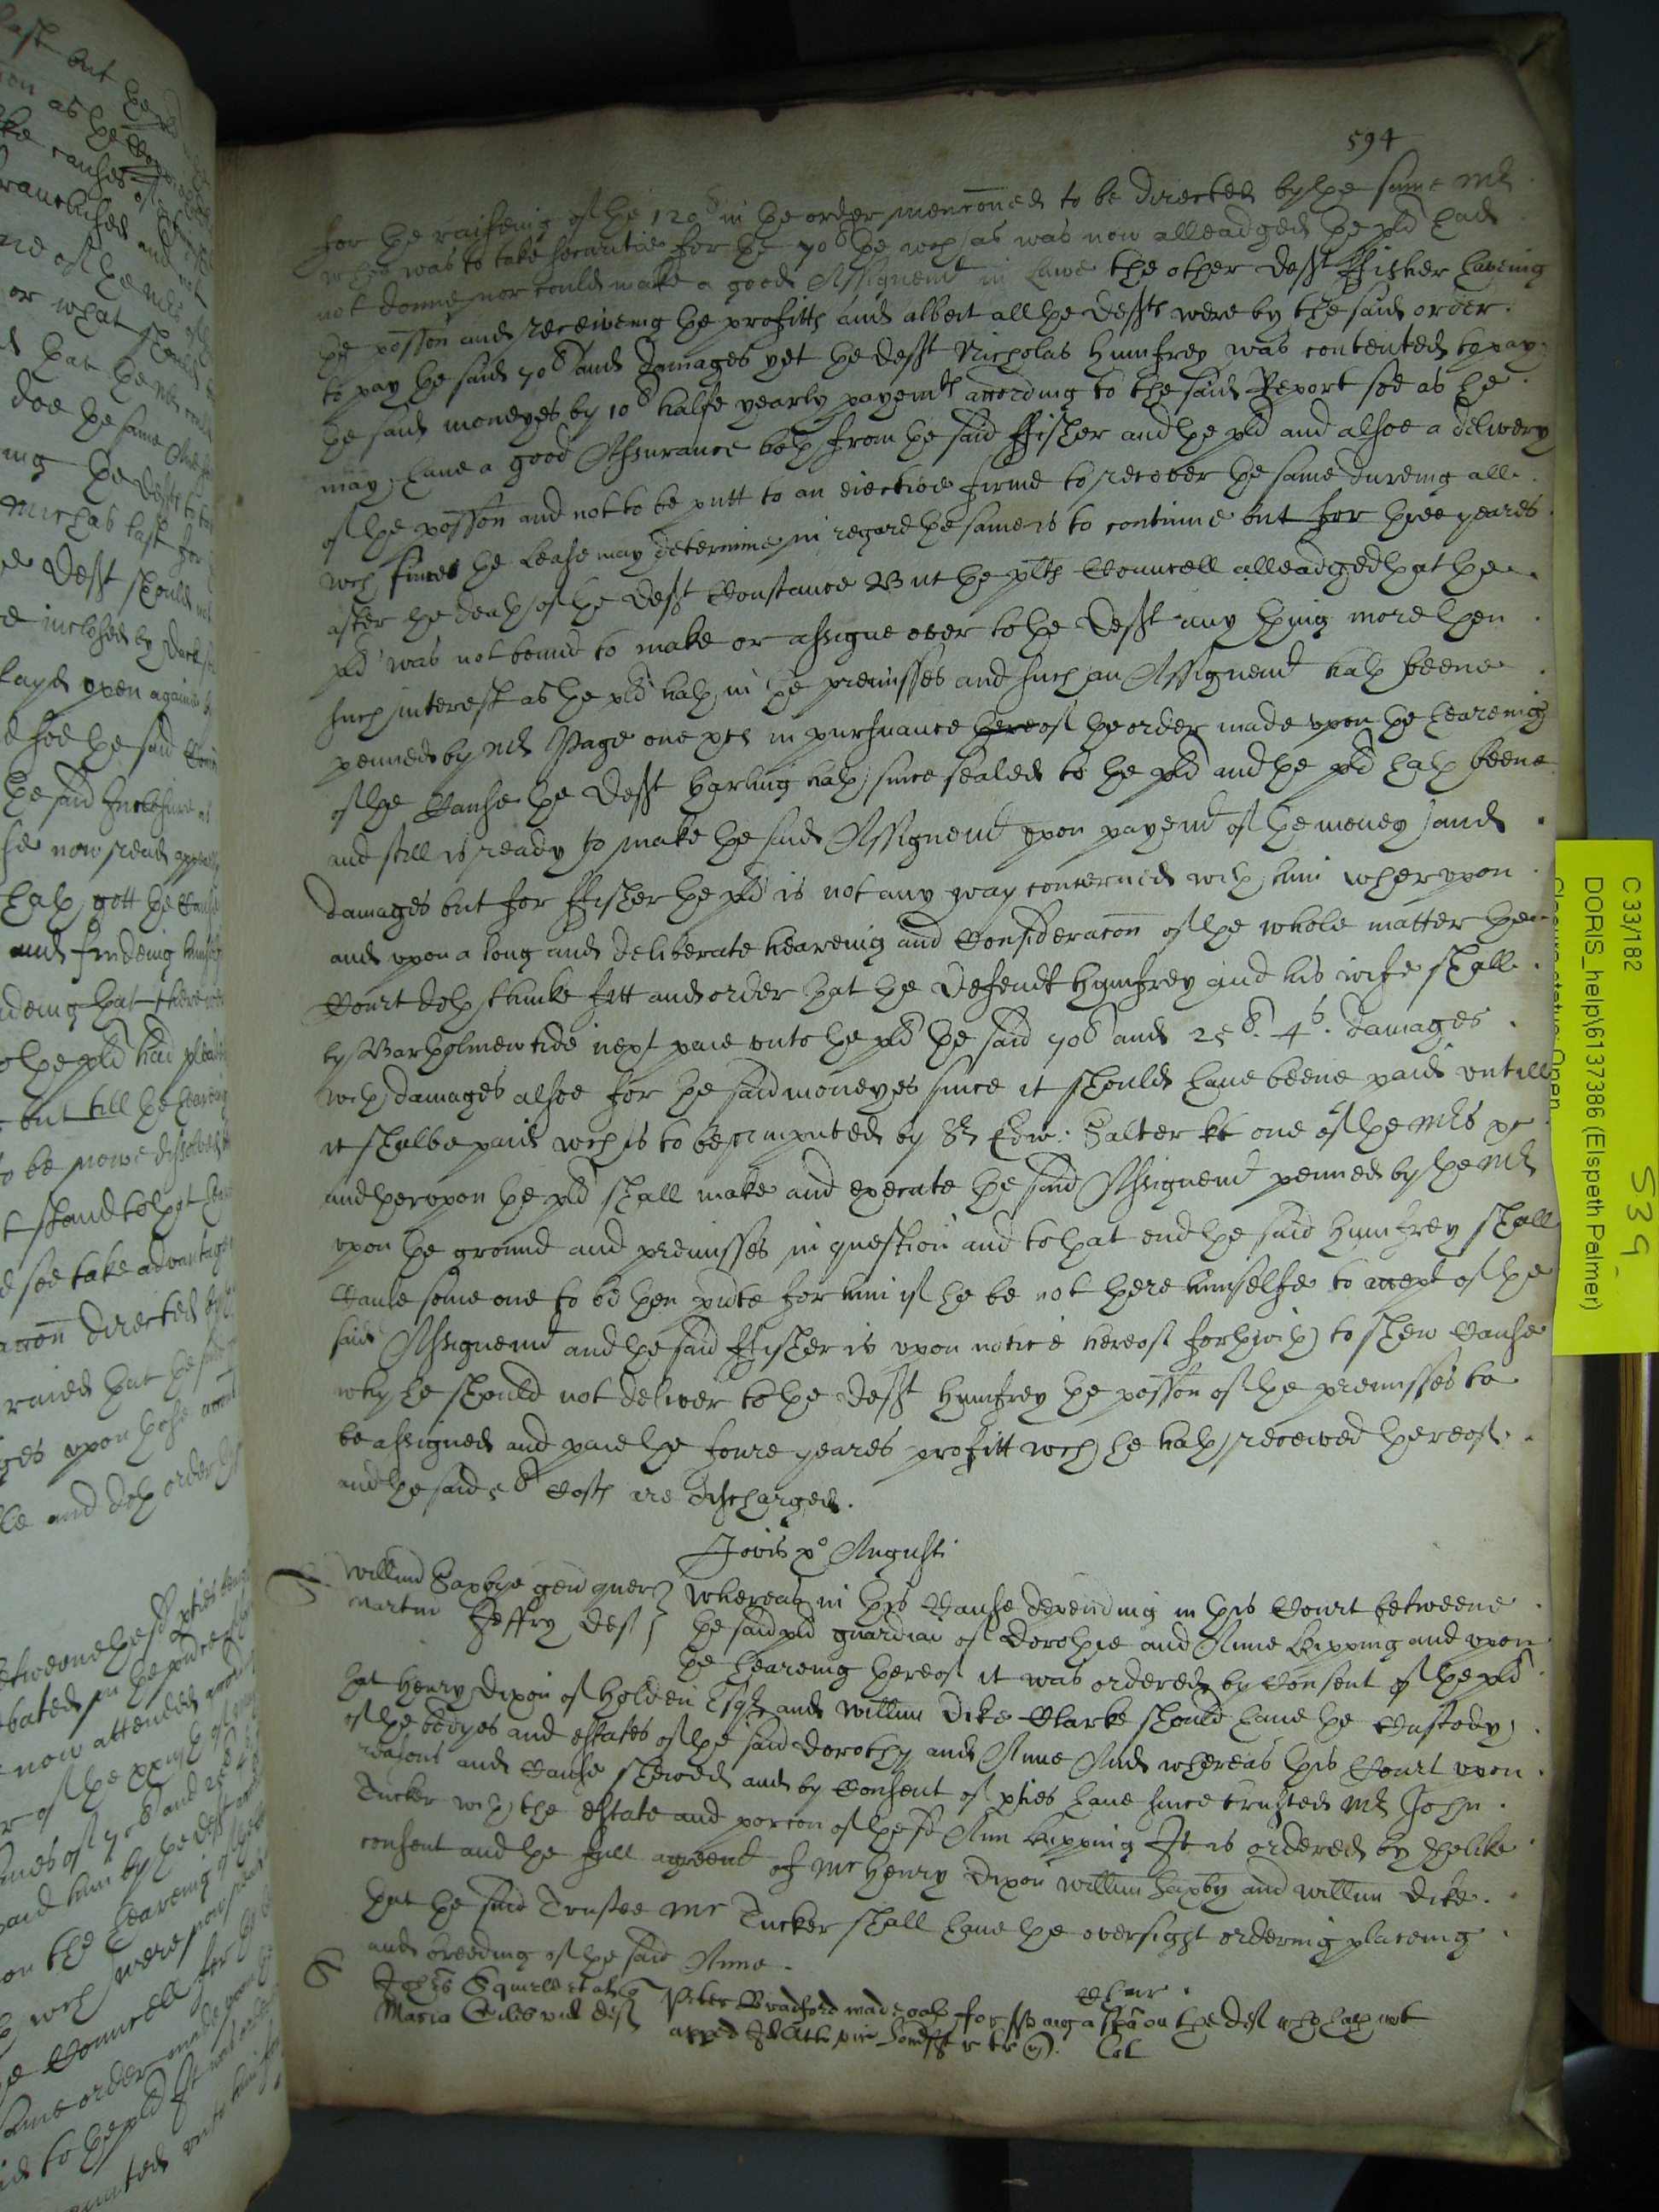 594
for the raiseing of the 120li in the order menconed to be directed by the same Mr
whoe was to take securitie for the 70li the wch as was now alleadged the plt had
not donne nor could make a good Assignemt in Lawe the other deft ffisher haveing
the posson and receiveing the profitts and albeit all the defts were by the said order
to pay the said 70li and damages yet the deft Nicholas Humfrey was contented to pay
the said moneyes by 10li halfe yearly paymts according to the said Report soe as he
may have a good Assurance both from the said ffisher and the plt and alsoe a delivery
of the posson and not to be putt to an eiectione firme to recover the same dureing all
wch times the Lease may determine in regard the same is to continue but for three yeares
after the death of the deft Constance But the plts Councell alleadged that the
plt was not bound to make or assigne over to the deft any thing more then
such interest as the plt hath in the premisses and such an Assignemt hath beene
penned by Mr Page one &c in pursuance thereof the order made upon the heareing
of the Cause the deft Harling hath since sealed to the plt and the plt hath beene
and still is ready to make the said Assignemt upon payemt of the money and
damages but for ffisher the plt is not any way concerned with him wherupon
and upon a long and deliberate heareing and Consideracon of the whole matter the
Court doth thinke fitt and order that the defendt Humfrey and his wife shall
by Bartholmewtide next paie unto the plt the said 70li and 25li. 4s. damages
with damages alsoe for the said moneyes since it should have beene paid untill
it shalbe paid wch is to be computed by Sr Edw: Salter kt one of the Mrs &c
and therupon the plt shall make and execute the said Assignemt penned by the Mr
upon the ground and premisses in question and to that end the said Humfrey shall
Cause some one to be then pnte for him if he be not there himselfe to accept of the
said Assignemt and the said ffisher is upon notice hereof forthwith to shew Cause
why he should not deliver to the deft Humfrey the posson of the premisses to
be assigned and paie the foure yeares profitt wch he hath received thereof
and the said 5li Costs are discharged.
Jovis po Augusti
Willmus Saxbye gen quer
Martin Jeffry deft
Whereas in this Cause depending in this Court betweene
the said plt guardian of Dorothie and Anne Kipping and upon
the heareing thereof it was ordered by Consent of the plt
that Henry Dixon of Holden Esqr and Willm Dike Clarke should have the Custody
of the bodyes and estates of the said Dorothy and Anne And whereas this Court upon
reasons and Cause shewed and by Consent of pties have since trusted Mr John
Tucker with the estate and porcon of the sd Ann Kipping It is ordered by the like
consent and the full agreemt of Mr Henry Dixon Willm Saxby and Willm Dike
that the said Trustee Mr Tucker shall have the oversight ordering placeing
and breeding of the said Anne.
Maria vid deft
Peter Bradford made oath for sving a spa on the deft who hath not
C 33/182
DORIS_help\6137386 (Elspeth Palmer)
539